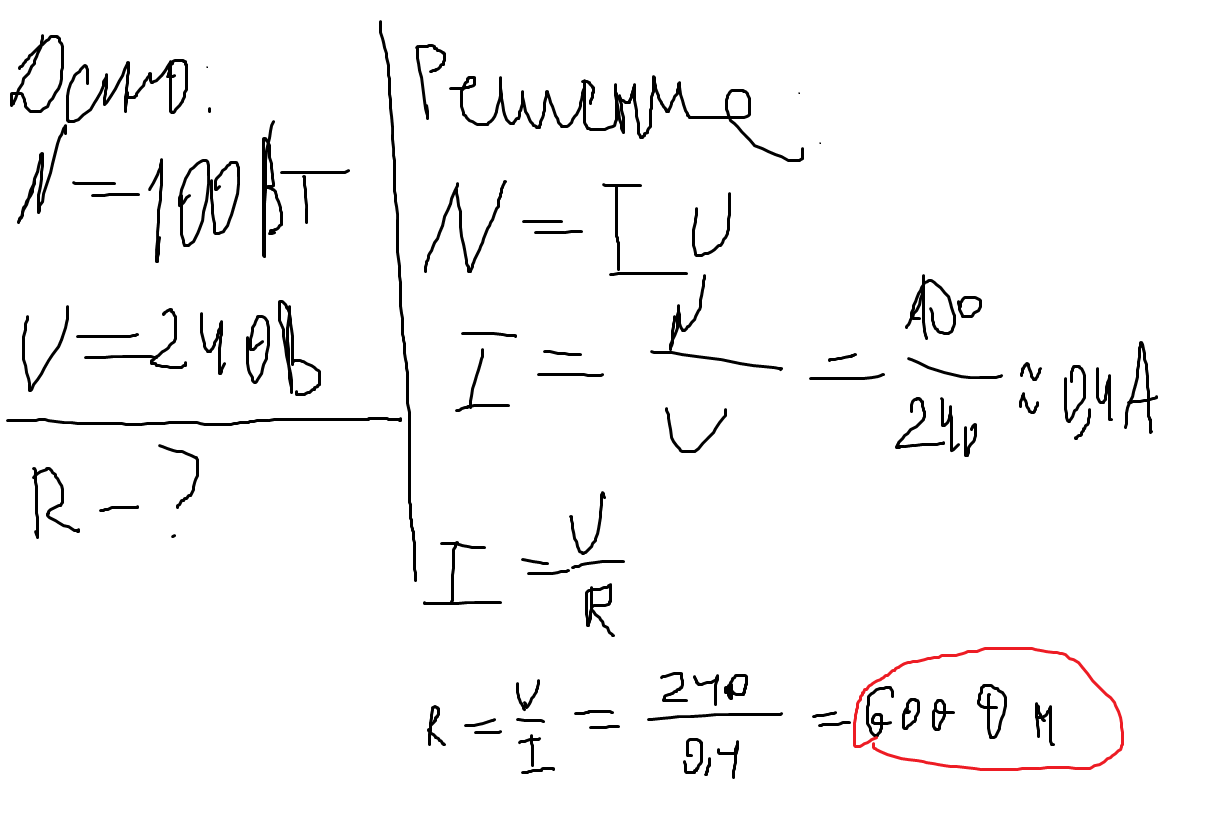 Дано:
N = 100 Вт
U = 240 В
R - ?
Решение
N = I U
I = N / U = 100 / 240 ≈ 0,4 А
I = U / R
R = U / I = 240 / 0,4 = 600 Ом